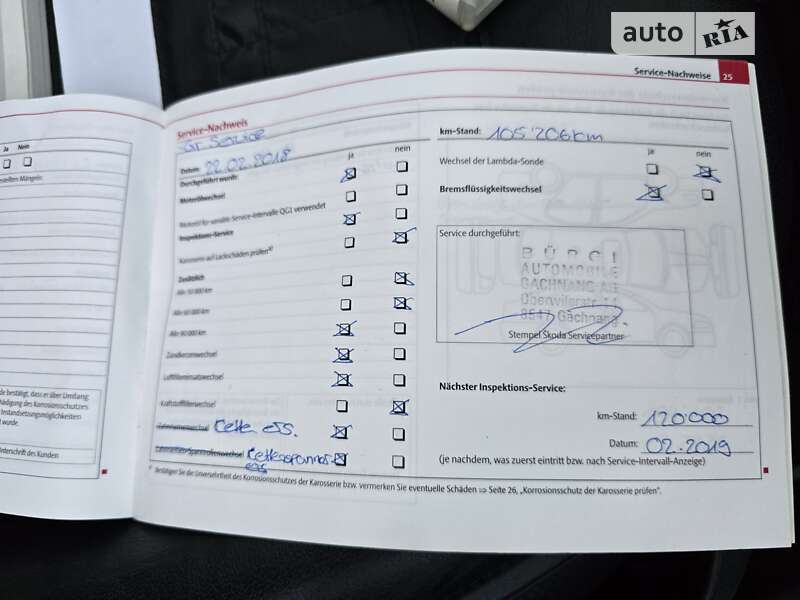 auto RIA
Service-Nachweise 25
Ja Nein
Service-Nachweis
Gr. Service
Datum: 22.02.2018
ja nein
Durchgeführt wurde:
Motorölwechsel
Motoröl für variable Service-Intervalle QG1 verwendet
Inspektions-Service
Karosserie auf Lackschäden prüfen
Zusätzlich
Alle 60 000 km
Alle 90 000 km
Zündkerzenwechsel
Luftfiltereinsatzwechsel
Kraftstofffilterwechsel
Zahnriemenwechsel
km-Stand: 105'206 km
ja nein
Wechsel der Lambda-Sonde
Bremsflüssigkeitswechsel
Service durchgeführt:
BÜRGI
AUTOMOBILE
GACHNANG AG
Oberwilerstr. 11
8547 Gachnang
Stempel Škoda Servicepartner
Nächster Inspektions-Service:
km-Stand: 120'000
Datum: 02.2019
(je nachdem, was zuerst eintritt bzw. nach Service-Intervall-Anzeige)
Bestätigen Sie die Unversehrtheit des Korrosionsschutzes der Karosserie bzw. vermerken Sie eventuelle Schäden ⇒ Seite 26, „Korrosionsschutz der Karosserie prüfen“.
de bestätigt, dass er über Umfang
hädigung des Korrosionsschutzes
Instandsetzungsmöglichkeiten
t wurde.
nterschrift des Kunden